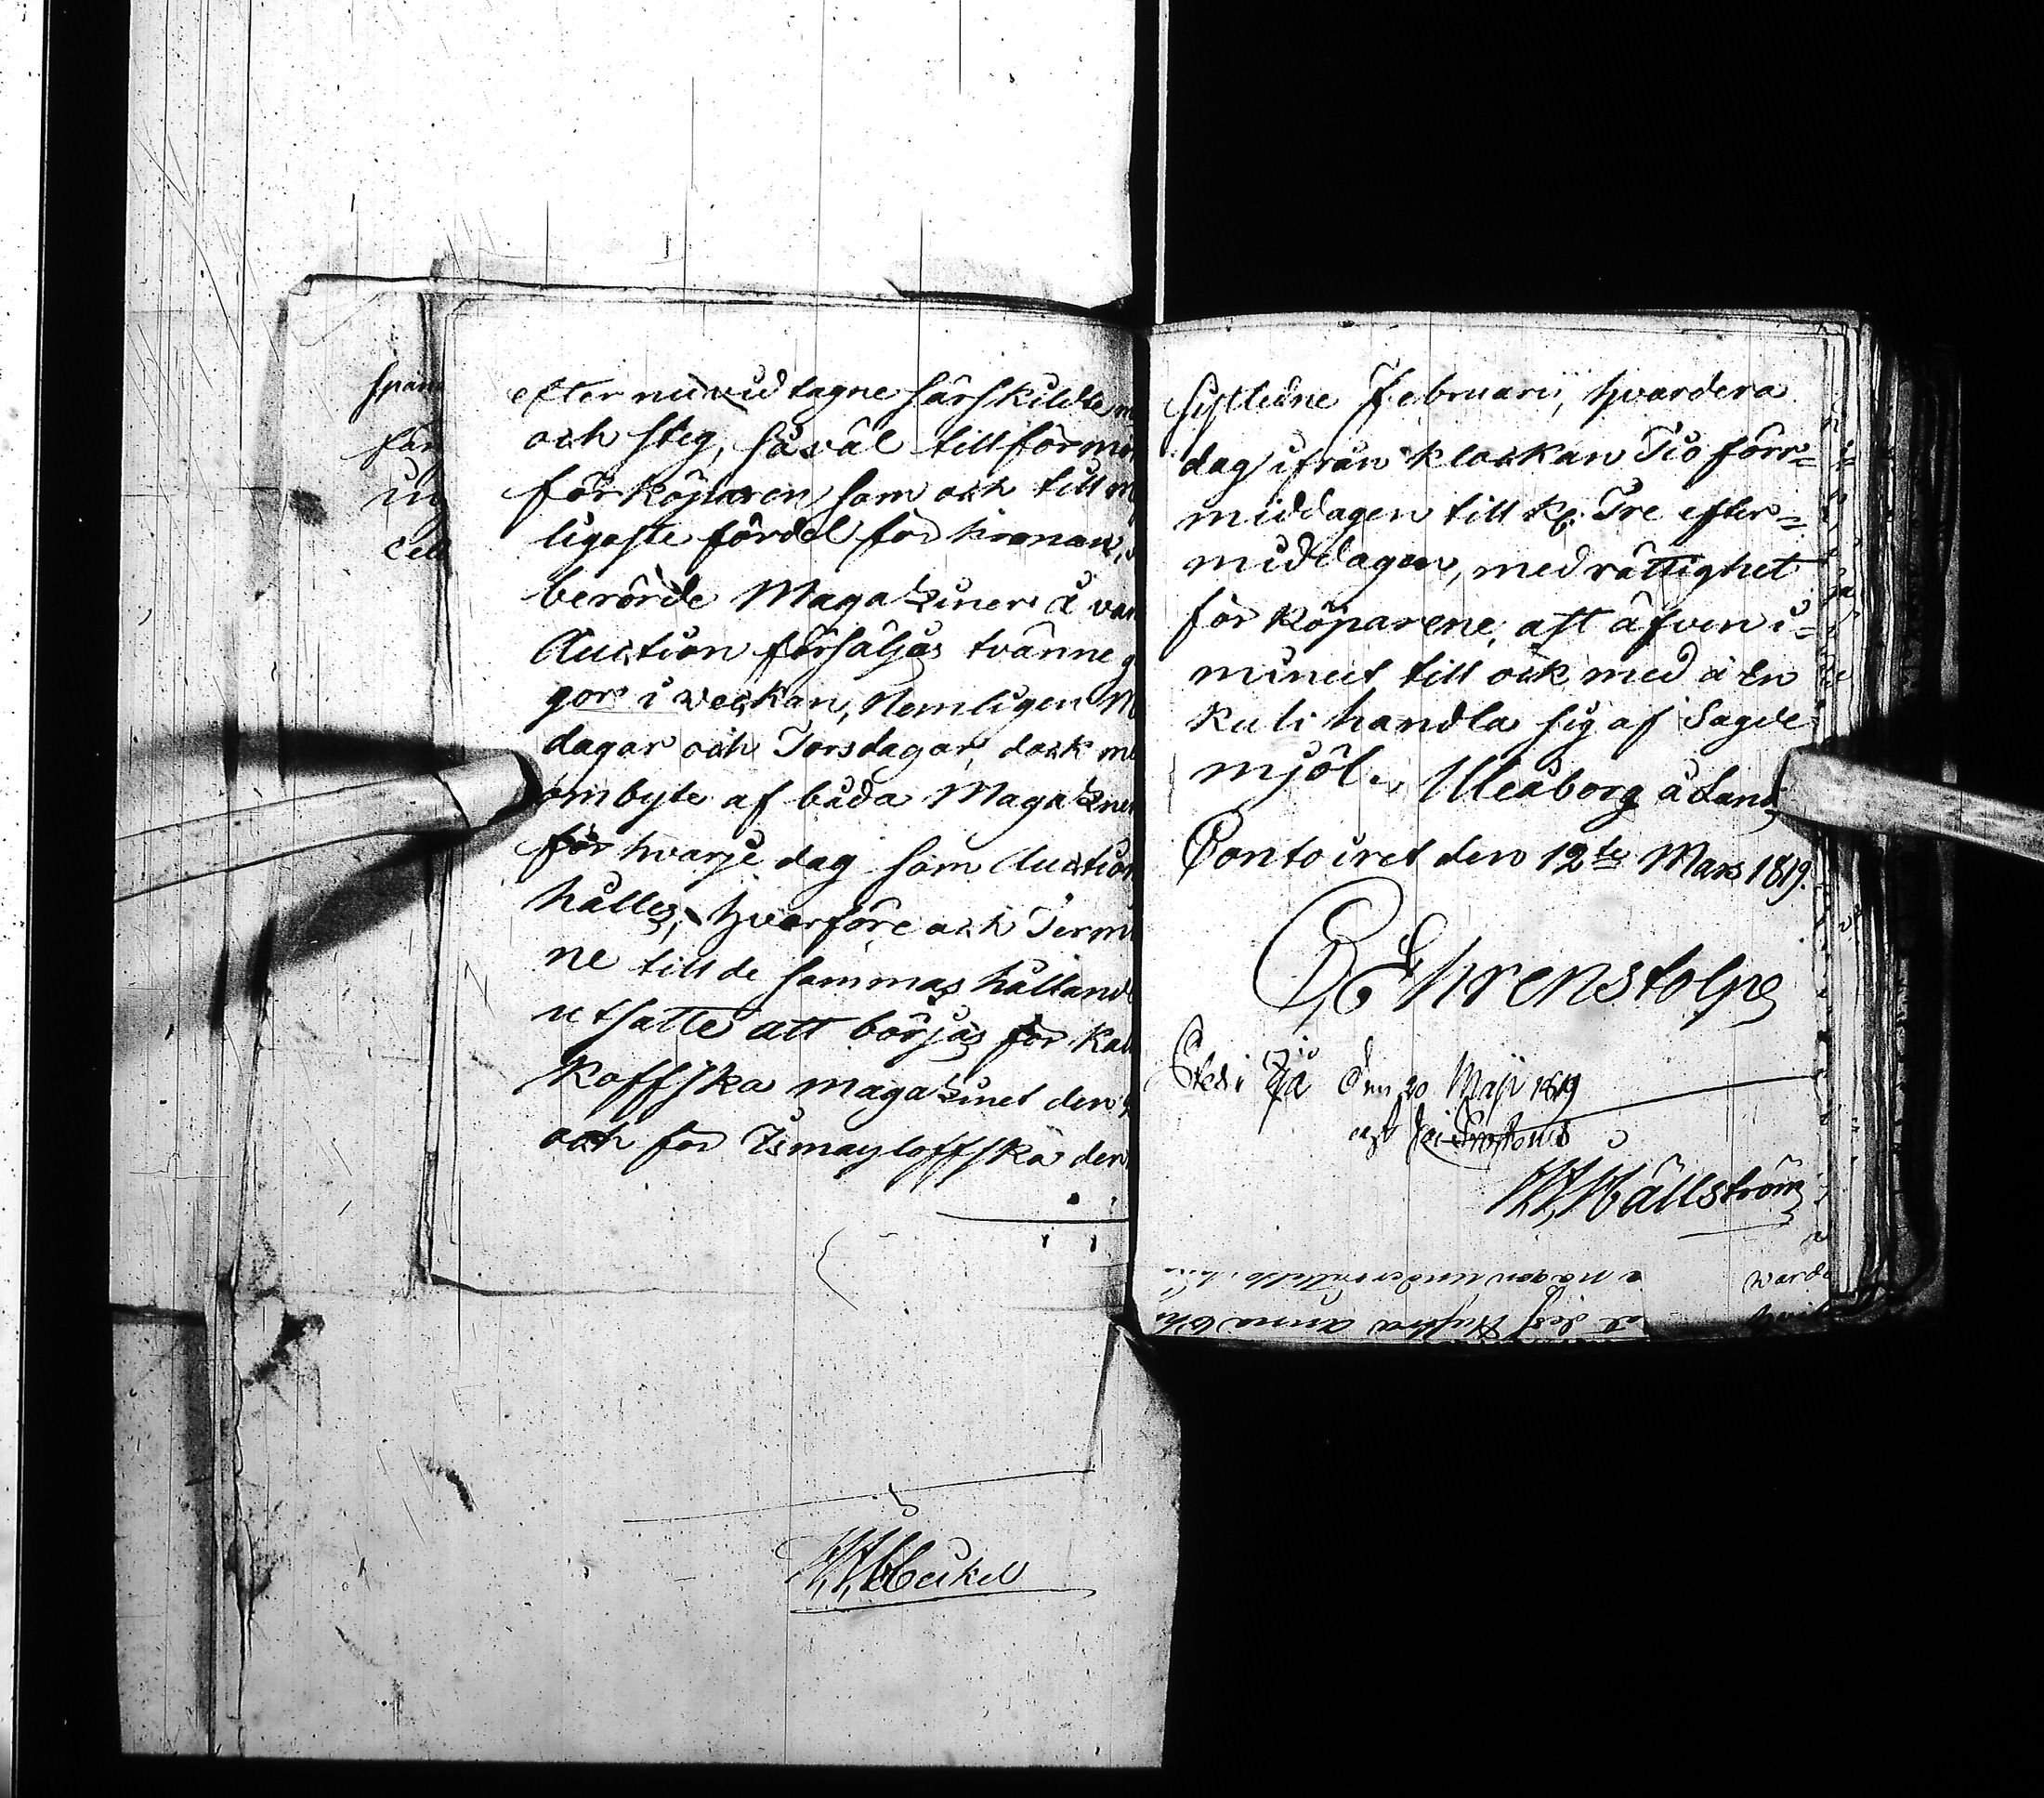 efter nu vid tagne särskilde
och steg, så väl till förmo
för köparen som och till m
ligaste fördel för kronan,
berörde Magatziner å van
Auction försäljas tvänne g
gor i veckan, Nemligen M
dagar och Torsdagar, dock me
ombyte af båda Magatzine
för hvarje dag som Auction
hålles, hvarföre och Termi
ne till de sammas hålland
utsatte att börjas för Kal
koffska magazinet den
och för Ismayloffska den
sistledne Februarii, hvardera
dag ifrån klockan Tio förr=
middagen till kl. Tre efter=
middagen, med rättighet
för köparene, att äfven i=
minut till ock med à en
kuli handla sig af Sagde
mjöl. Uleåborg å Lands
Contoiret den 12te Mars 1819.
Ehrenstolpe
den 20 Maji 1819
Hällström
spam
för
ug
cell
Heikel